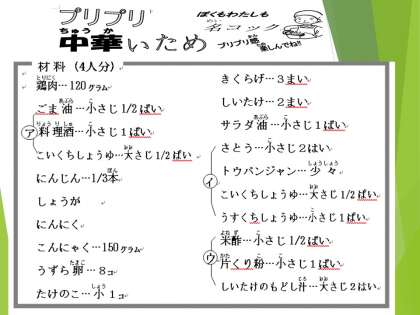 プリプリ
中華いため
ちゅうか
ぼくもわたしも
名コック
プリプリ感
楽しんでね!!
材料 (4人分)
鶏肉…120グラム
とりにく
ごま油…小さじ1/2ばい
ア
料理酒…小さじ1ばい
こいくちしょうゆ…大さじ1/2ばい
にんじん…1/3本
しょうが
にんにく
こんにゃく…150グラム
うずら卵…8コ
たけのこ…小1コ
きくらげ…3まい
しいたけ…2まい
サラダ油…小さじ1ばい
さとう…小さじ2はい
イ
トウバンジャン…少々
こいくちしょうゆ…大さじ1/2ばい
うすくちしょうゆ…小さじ1ばい
米酢…小さじ1/2ばい
ウ
片くり粉…小さじ1ばい
しいたけのもどし汁…大さじ2はい